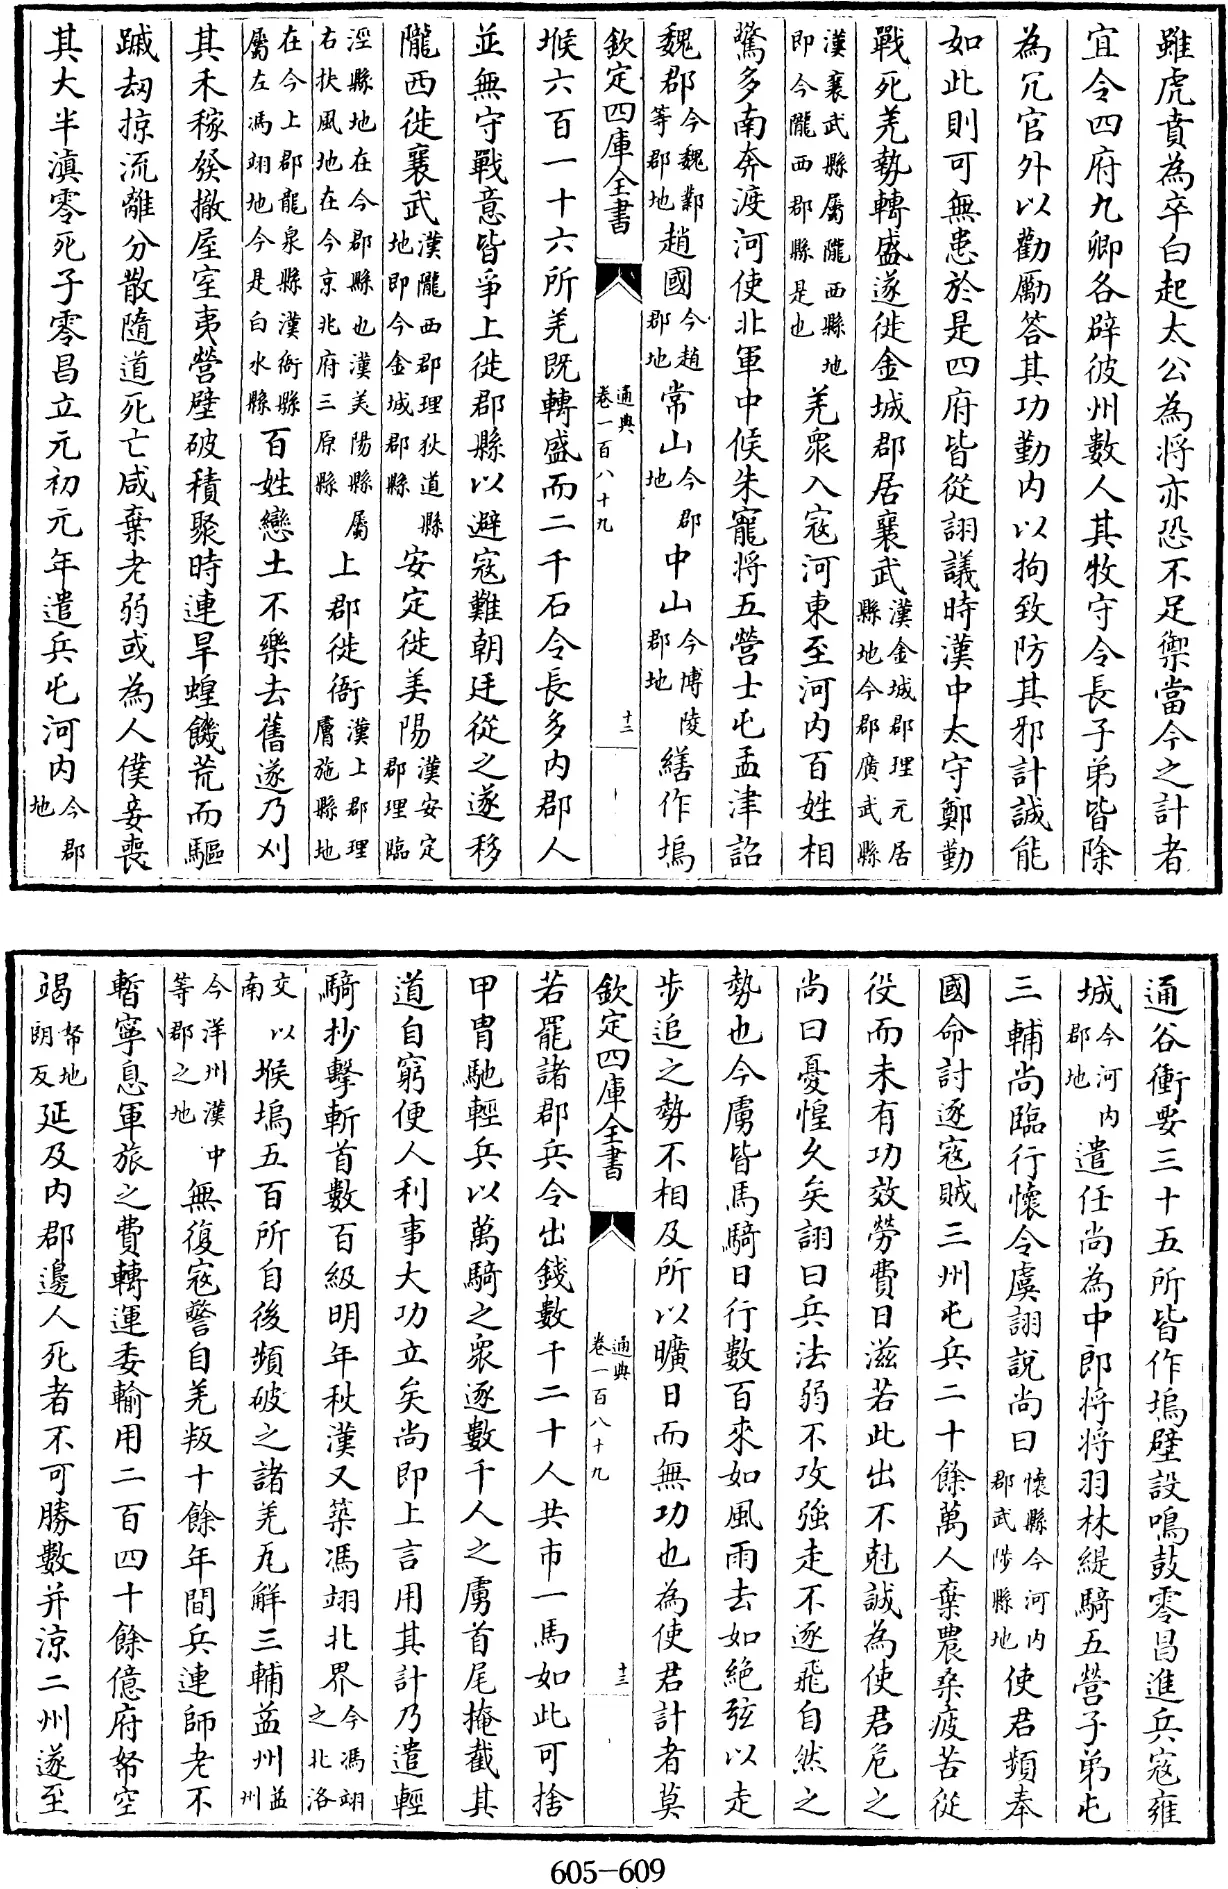 雖虎賁為卒白起太公為將亦恐不足禦當今之計者
宜令四府九卿各辟彼州數人其牧守令長子弟皆除
為冗官外以勸勵答其功勤内以拘致防其邪計誠能
如此則可無患於是四府皆從詡議時漢中太守鄭勤
戰死羌勢轉盛遂徙金城郡居襄武漢金城郡理元居縣地今郡廣武縣
漢襄武縣屬隴西縣地即今隴西郡縣是也羌衆入寇河東至河内百姓相
驚多南奔渡河使北軍中候朱寵將五營士屯孟津詔
魏郡今魏鄴等郡地趙國今趙郡地常山今郡地中山今博陵郡地繕作塢
欽定四庫全書 通典卷一百八十九 十二
堠六百一十六所羌既轉盛而二千石令長多内郡人
並無守戰意皆爭上徙郡縣以避寇難朝廷從之遂移
隴西徙襄武漢隴西郡理狄道縣地即今金城郡縣安定徙美陽漢安定郡理臨
涇縣地在今郡縣也漢美陽縣屬右扶風地在今京兆府三原縣上郡徙衙漢上郡理膚施縣地
在今上郡龍泉縣漢衙縣屬左馮翊地今是白水縣百姓戀土不樂去舊遂乃刈
其禾稼發撤屋室夷營壁破積聚時連旱蝗饑荒而驅
蹙刼掠流離分散隨道死亡咸棄老弱或為人僕妾喪
其大半滇零死子零昌立元初元年遣兵屯河内今郡地
通谷衝要三十五所皆作塢壁設鳴鼓零昌進兵寇雍
城今河内郡地遣任尚為中郎將將羽林緹騎五營子弟屯
三輔尚臨行懷令虞詡說尚曰懷縣今河内郡武陟縣地使君頻奉
國命討逐寇賊三州屯兵二十餘萬人棄農桑疲苦從
役而未有功效勞費日滋若此出不尅誠為使君危之
尚曰憂惶久矣詡曰兵法弱不攻強走不逐飛自然之
勢也今虜皆馬騎日行數百來如風雨去如絕弦以走
步追之勢不相及所以曠日而無功也為使君計者莫
欽定四庫全書 通典卷一百八十九 十三
若罷諸郡兵令出錢數千二十人共市一馬如此可捨
甲胄馳輕兵以萬騎之衆逐數千人之虜首尾掩截其
道自窮便人利事大功立矣尚即上言用其計乃遣輕
騎抄擊斬首數百級明年秋漢又築馮翊北界今馮翊之北洛
交以南堠塢五百所自後頻破之諸羌瓦解三輔益州益州
今洋州漢中等郡之地無復寇警自羌叛十餘年間兵連師老不
暫寧息軍旅之費轉運委輸用二百四十餘億府帑空
竭帑地朗反延及内郡邊人死者不可勝數并涼二州遂至
605-609